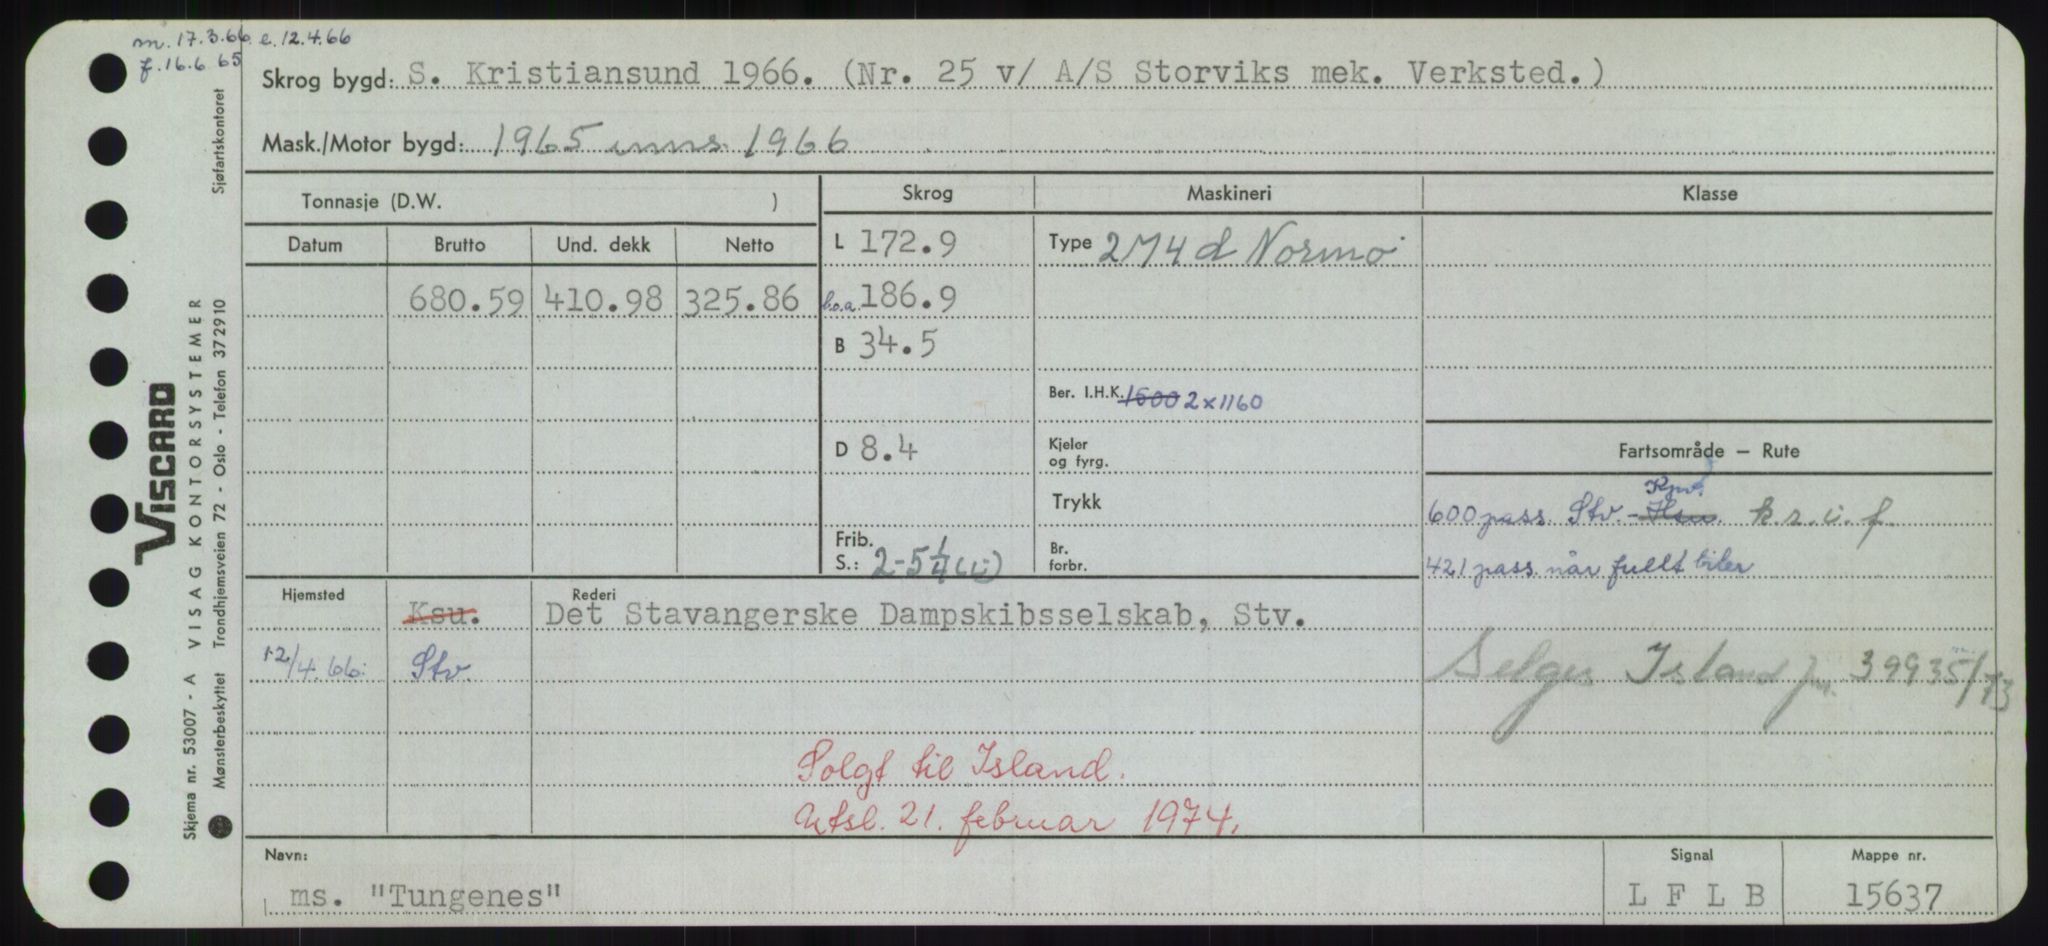 m. 17.3.66. e. 12.4.66
f. 16.6 65
Skrog bygd: S. Kristiansund 1966. (Nr. 25 v/ A/S Storviks mek. Verksted.)
Mask./Motor bygd: 1965 inns. 1966
Tonnasje (D.W. )
Skrog
Maskineri
Klasse
Datum Brutto Und. dekk Netto
L 172.9
Type 2 74 d Normo
680.59 410.98 325.86
b.o.a. 186.9
B 34.5
Ber. I.H.K. 1500 2x1160
D 8.4
Kjeler
og fyrg.
Fartsområde — Rute
Trykk
600 pass. Stv. - Hsu. k.r.i.f.
Frib.
S.: 2-5 1/4 (i)
Br.
forbr.
421 pass. når fullt biler
Hjemsted
Ksu.
Rederi
Det Stavangerske Dampskibsselskab, Stv.
12/4.66. Stv.
Selges Island jnr. 39935/73
Solgt til Island.
Utsl. 21. februar 1974.
Navn:
ms. "Tungenes"
Signal
L F L B
Mappe nr.
15637
VISCARD
Skjema nr. 53007 - A VISAG KONTORSYSTEMER
Mønsterbeskyttet Trondhjemsveien 72 - Oslo - Telefon 372910
Sjøfartskontoret